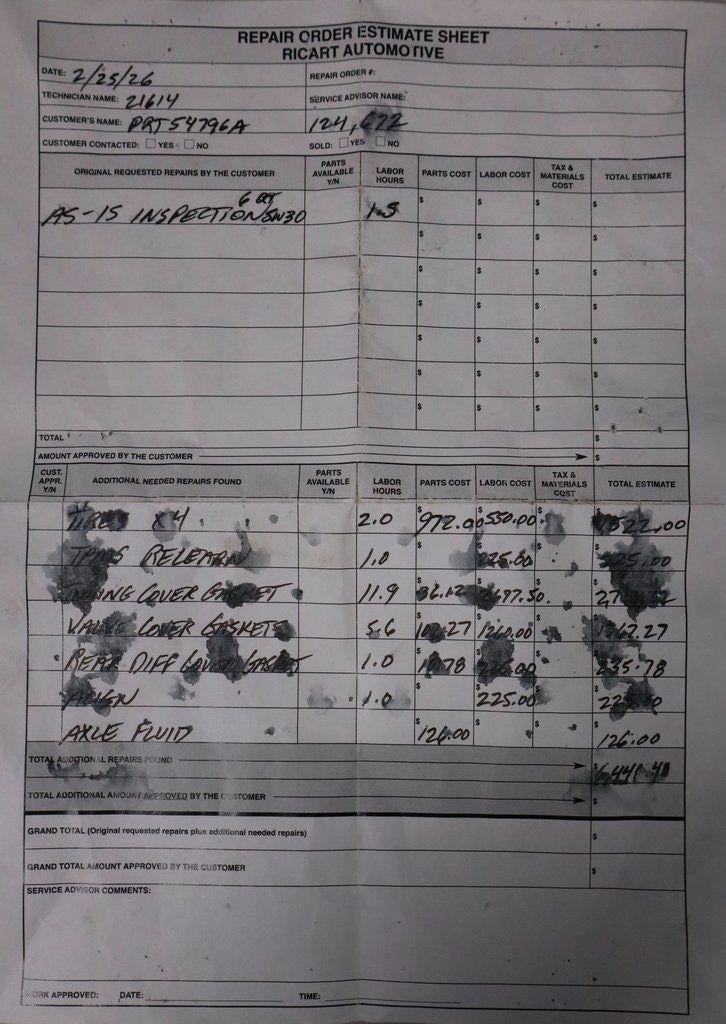 REPAIR ORDER ESTIMATE SHEET
RICART AUTOMOTIVE
DATE: 2/25/26 REPAIR ORDER #:
TECHNICIAN NAME: 21614 SERVICE ADVISOR NAME:
CUSTOMER'S NAME: PRT54796A 124,672
CUSTOMER CONTACTED: YES NO SOLD: YES NO
ORIGINAL REQUESTED REPAIRS BY THE CUSTOMER PARTS AVAILABLE Y/N LABOR HOURS PARTS COST LABOR COST TAX & MATERIALS COST TOTAL ESTIMATE
AS-IS INSPECTION 6 QT 5W30 1.5 $ $ $ $
$ $ $ $
$ $ $ $
$ $ $ $
$ $ $ $
$ $ $ $
$ $ $ $
TOTAL $
AMOUNT APPROVED BY THE CUSTOMER $
CUST. APPR. Y/N ADDITIONAL NEEDED REPAIRS FOUND PARTS AVAILABLE Y/N LABOR HOURS PARTS COST LABOR COST TAX & MATERIALS COST TOTAL ESTIMATE
TIRES X4 2.0 $ 972.00 $ 550.00 $ $ 1522.00
TPMS RELEARN 1.0 $ $ 225.00 $ $ 225.00
TIMING COVER GASKET 11.9 $ 36.12 $ 2697.50 $ $
VALVE COVER GASKETS 5.6 $ 107.27 $ 1260.00 $ $ 1367.27
REAR DIFF COVER GASKET 1.0 $ $ $ $ 235.78
ALIGN 1.0 $ $ 225.00 $ $
AXLE FLUID $ 126.00 $ $ $ 126.00
TOTAL ADDITIONAL REPAIRS FOUND $
TOTAL ADDITIONAL AMOUNT APPROVED BY THE CUSTOMER $
GRAND TOTAL (Original requested repairs plus additional needed repairs) $
GRAND TOTAL AMOUNT APPROVED BY THE CUSTOMER $
SERVICE ADVISOR COMMENTS:
WORK APPROVED: DATE: TIME: